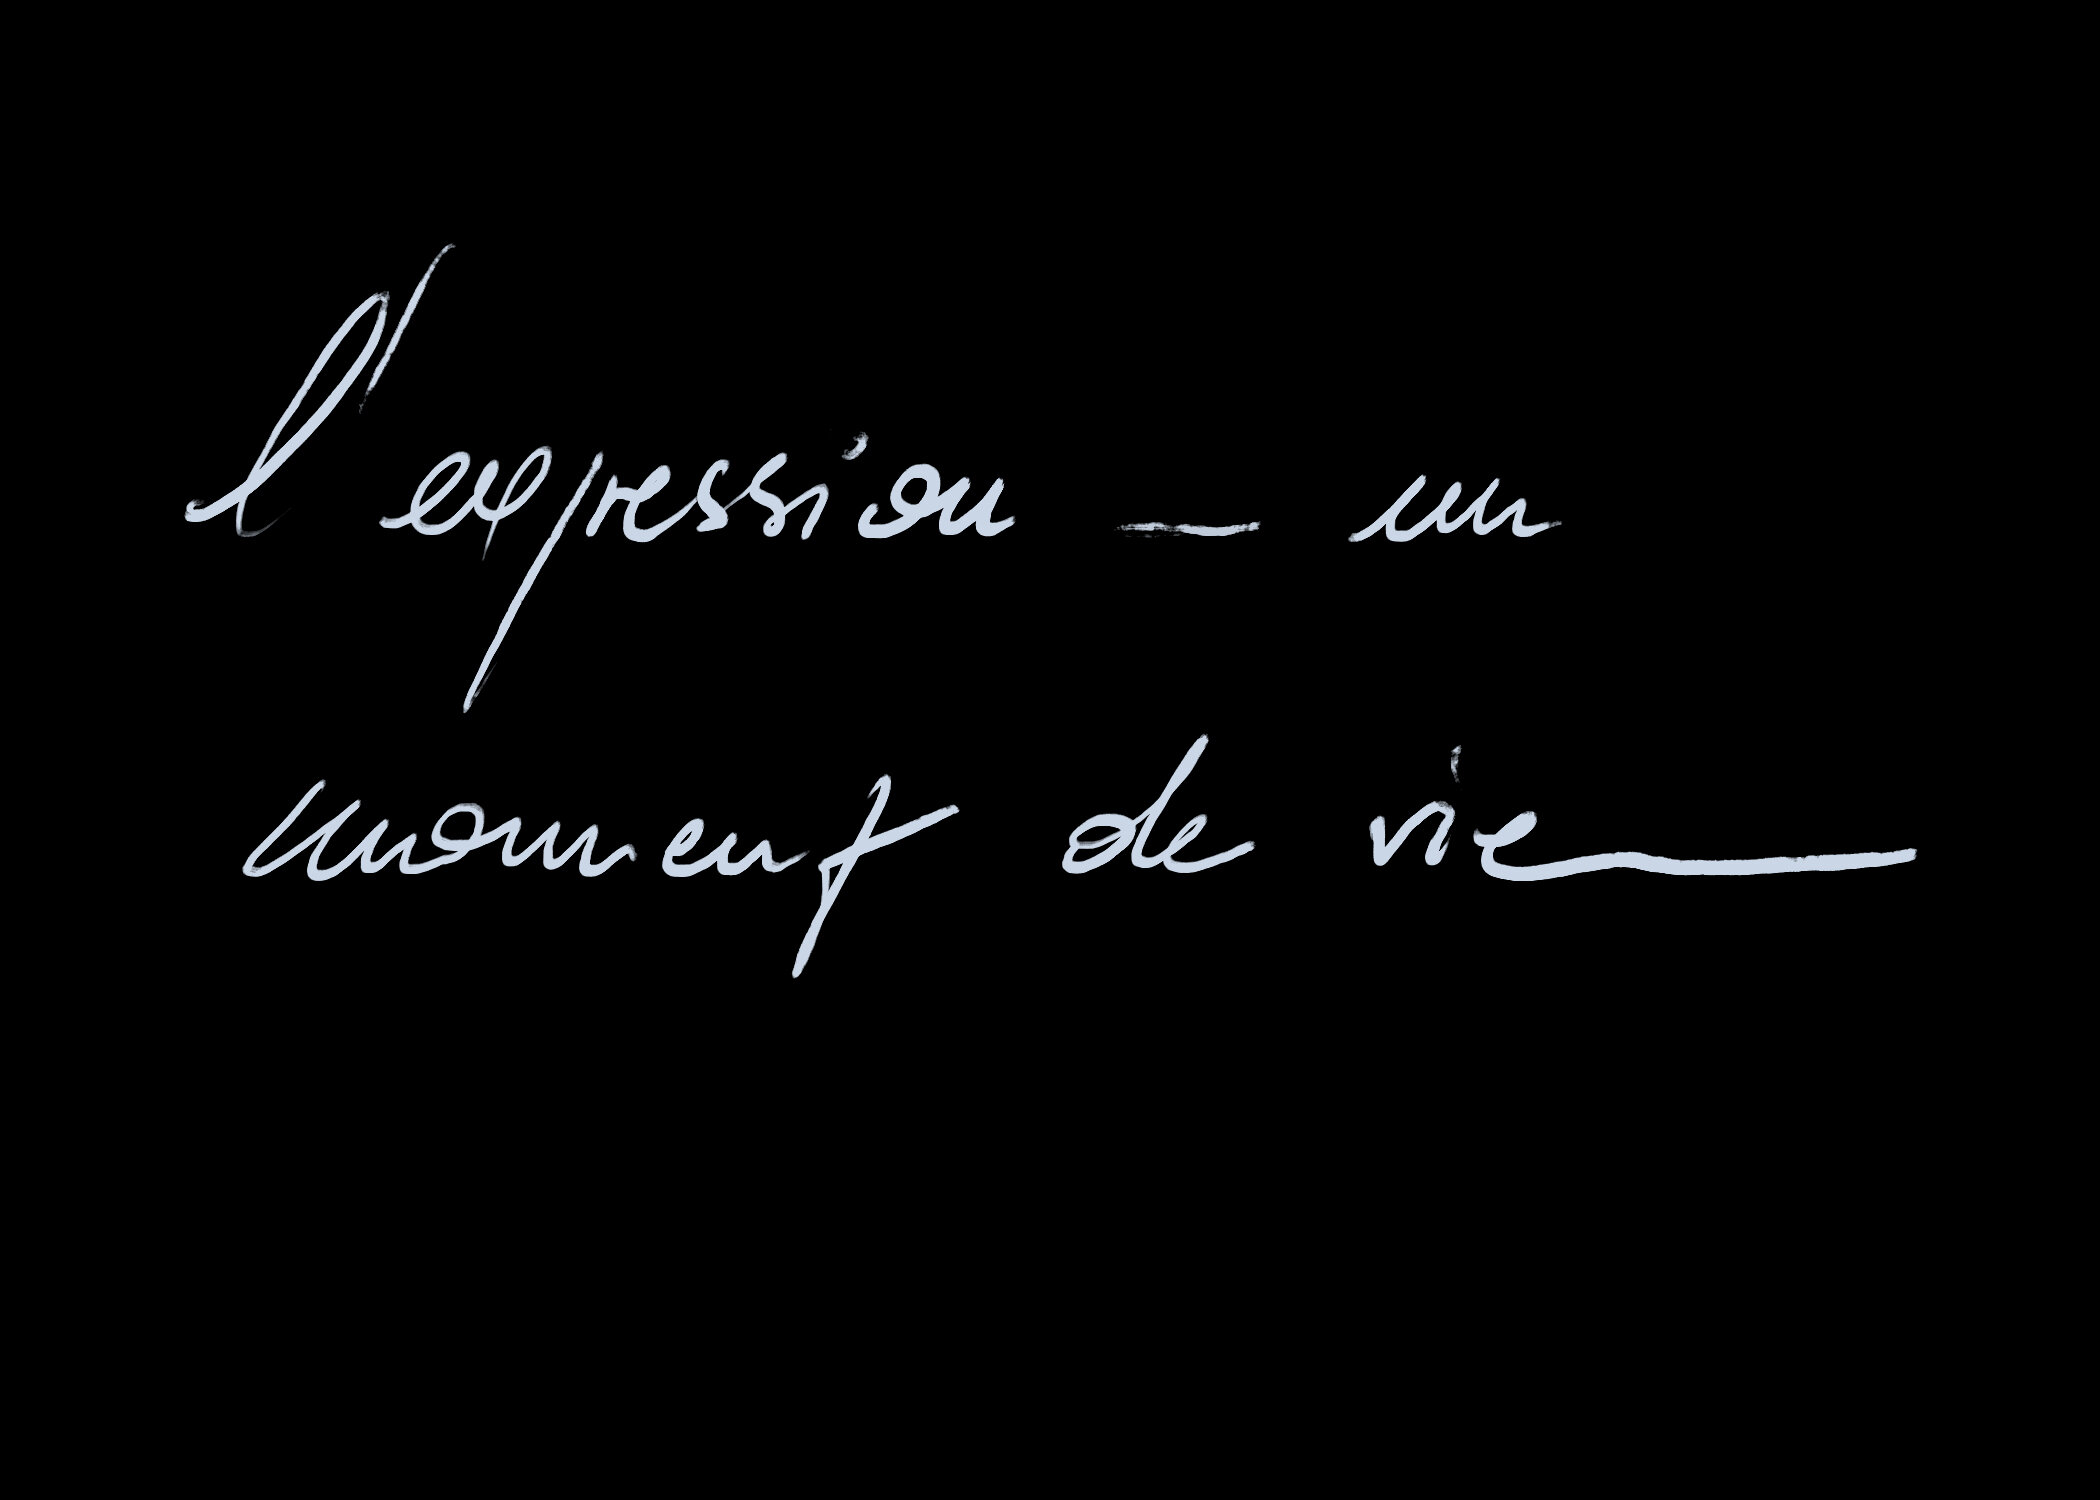 l'expression – un
moment de vie